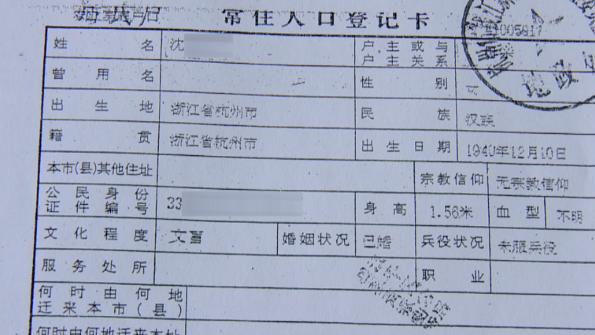 常住人口登记卡
005817
姓名 沈 户主或与户主关系
曾用名 性别 女
出生地 浙江省杭州市 民族 汉族
籍贯 浙江省杭州市 出生日期 1940年12月10日
本市(县)其他住址 宗教信仰 无宗教信仰
公民身份证件编号 33 身高 1.56米 血型 不明
文化程度 文盲 婚姻状况 已婚 兵役状况 未服兵役
服务处所 职业
何时由何地迁来本市(县)
何时由何地迁来本址